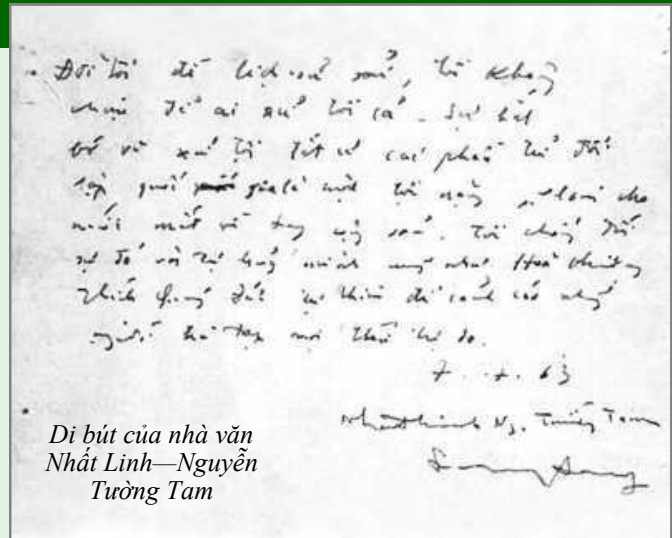 Đời tôi để lịch-sử xử, tôi không
chịu để ai xử tôi cả. Sự bắt
bớ và xử tội tất cả các phần tử đối
lập quốc gia là một tội nặng, sẽ làm cho
nước mất về tay cộng sản. Tôi chống đối
sự đó và tự huỷ mình cũng như Hoà thượng
Thích Quảng Đức tự thiêu để cảnh cáo những
người chà đạp mọi thứ tự do.
7.7.63
Nhất Linh Ng. Tường Tam
Di bút của nhà văn
Nhất Linh—Nguyễn
Tường Tam